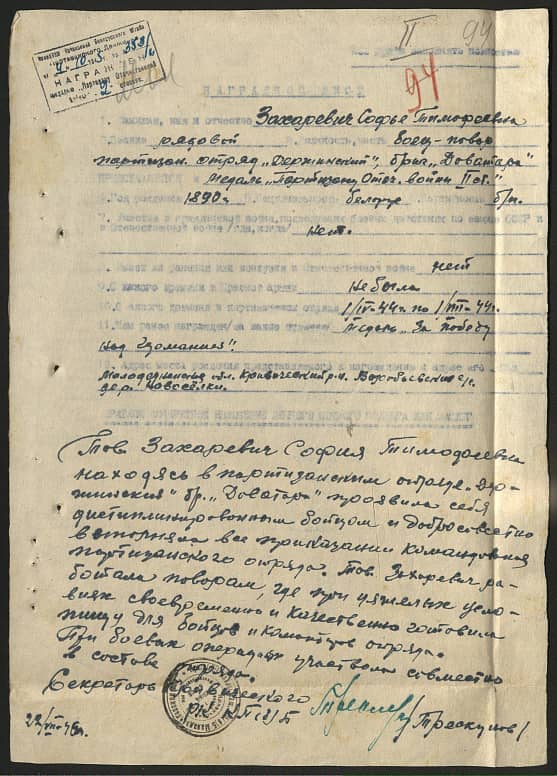 II 94
94
НАГРАДНОЙ ЛИСТ
1. Фамилия, имя и отчество Захаревич Софья Тимофеевна
2. Звание рядовой 3. Должность, часть Боец-повар
партизан. отряд „Держинский", бриг. „Доватора"
ПРЕДСТАВЛЯЕТСЯ к Медаль „Партизану Отеч. войны II ст."
4. Год рождения 1890 г. 5. Национальность белорус 6. Партийность б/п.
7. Участие в гражданской войне, последующих боевых действиях по защите СССР и
в Отечественной войне /где, когда/ нет.
8. Имеет ли ранения или контузии в Отечественной войне нет
9. С какого времени в Красной Армии не была
10. С какого времени в партизанском отряде 1/IV-44 г. по 1/VII-44 г.
11. Чем ранее награжден /за какие отличия/ Медаль „За победу
над Германией".
12. Адрес места рождения представляемого к награждению и адрес его
Молодечненская обл. Кривичский р-н.
дер. Новосёлки.
Тов. Захаревич София Тимофеевна
находясь в партизанским отряде „Дер-
жинский" бр. „Доватора" проявила себя
дисциплинированным бойцом и добросовестно
выполняла все приказании командования
партизанского отряда. Тов. Захаревич ра-
ботала поваром, где при тяжелых усло-
виях своевременно и качественно готовила
пищу для бойцов и командиров отряда.
При боевых операциях участвовала совместно
в составе отряда.
Секретарь Кривичского
РК КП/б/Б /Трескунов/